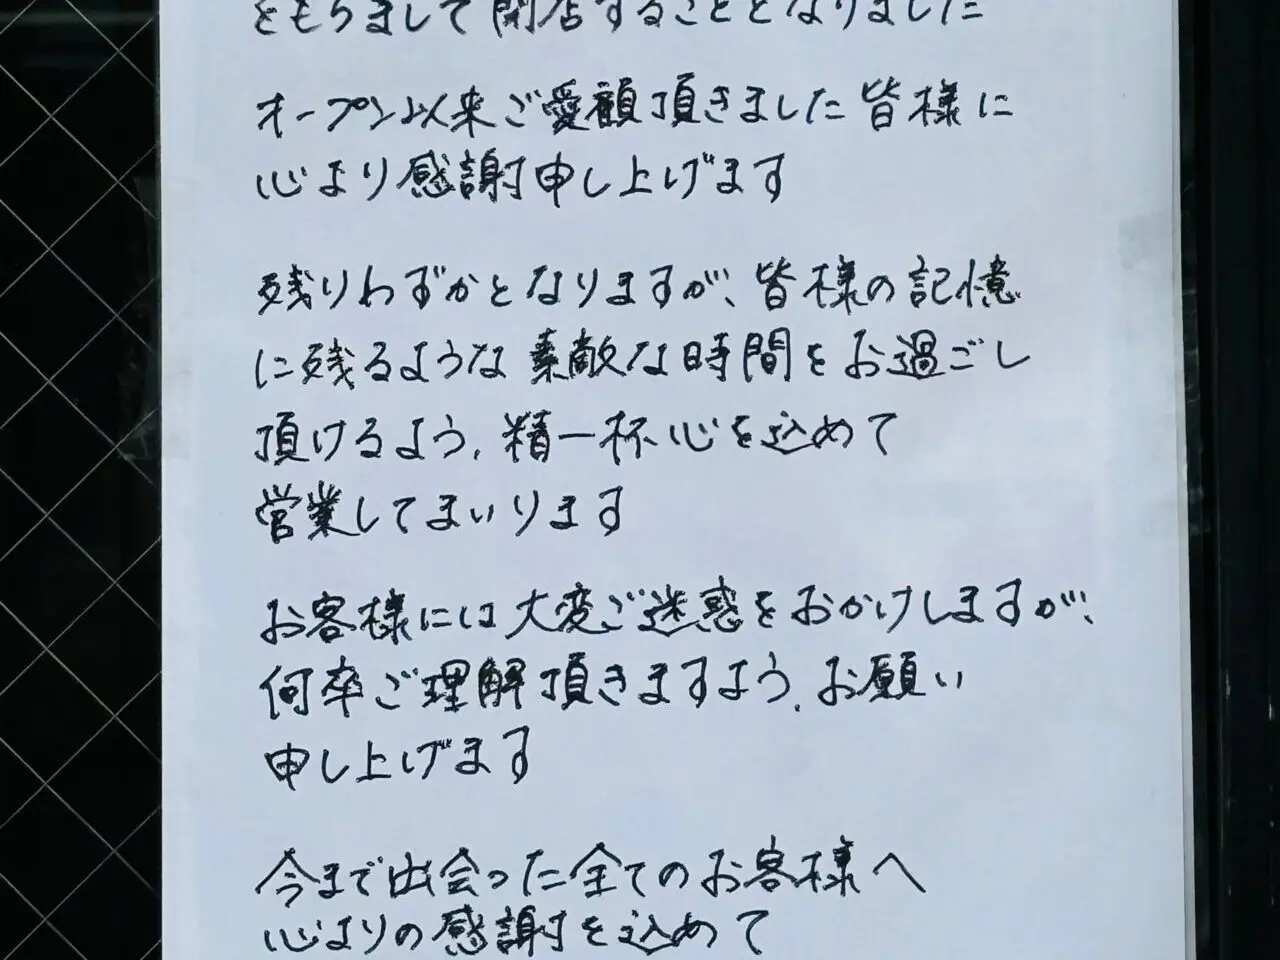 をもちまして閉店することとなりました
オープン以来ご愛顧頂きました皆様に
心より感謝申し上げます
残りわずかとなりますが、皆様の記憶
に残るような素敵な時間をお過ごし
頂けるよう、精一杯心を込めて
営業してまいります
お客様には大変ご迷惑をおかけしますが、
何卒ご理解頂きますよう、お願い
申し上げます
今まで出会った全てのお客様へ
心よりの感謝を込めて